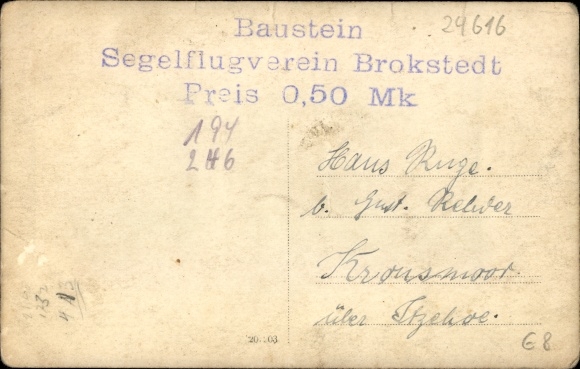 Baustein
Segelflugverein Brokstedt
Preis 0,50 Mk
24616
194
246
Hans Ruge.
b. Gust. Rehder
Kronsmoor.
über Itzehoe.
G8